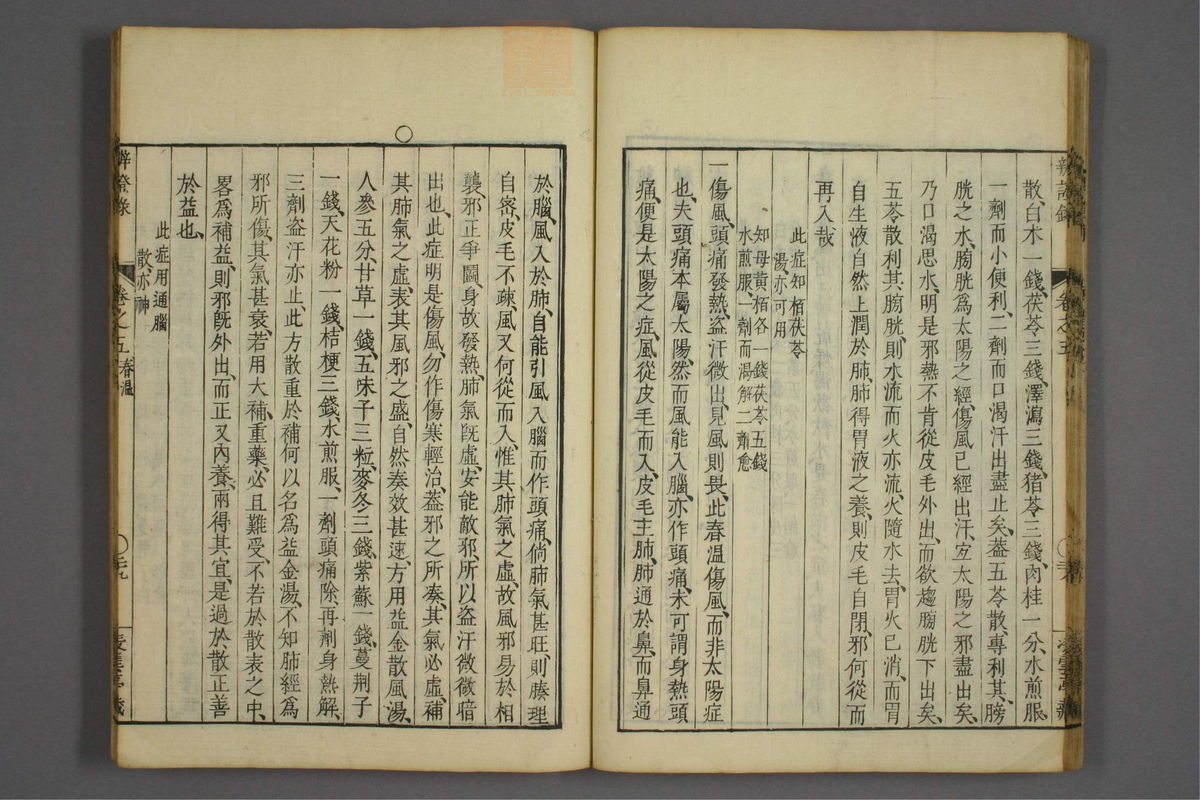 散、白术一錢、茯苓三錢、澤瀉三錢、猪苓三錢、肉桂一分、水煎服、
一劑而小便利、二劑而口渴汗出盡止矣、葢五苓散專利其膀
胱之水、膀胱爲太陽之經、傷風已經出汗、宜太陽之邪盡出矣、
乃口渴思水、明是邪熱不肯從皮毛外出、而欲趨膀胱下出矣、
五苓散利其膀胱、則水流而火亦流、火隨水去、胃火已消、而胃
自生液、自然上潤於肺、肺得胃液之養、則皮毛自閉、邪何從而
再入哉
此症知栢茯苓
湯、亦可用
知母黃栢各一錢茯苓五錢
水煎服、一劑而渴解二劑愈
一傷風、頭痛發熱、盜汗微出、見風則畏、此春溫傷風、而非太陽症
也、夫頭痛本屬太陽、然而風能入腦、亦作頭痛、未可謂身熱頭
痛、便是太陽之症、風從皮毛而入、皮毛主肺、肺通於鼻、而鼻通
於腦、風入於肺、自能引風入腦而作頭痛、倘肺氣甚旺、則腠理
自密、皮毛不疎、風又何從而入、惟其肺氣之虛、故風邪易於相
襲、邪正爭鬪、身故發熱、肺氣旣虛、安能敵邪、所以盜汗微微暗
出也、此症明是傷風、勿作傷寒輕治、葢邪之所湊、其氣必虛、補
其肺氣之虛、表其風邪之盛、自然奏效甚速、方用益金散風湯、
人參五分、甘草一錢、五味子三粒、麥冬三錢、紫蘇一錢、蔓荆子
一錢、天花粉一錢、桔梗三錢、水煎服、一劑頭痛除、再劑身熱解、
三劑盜汗亦止、此方散重於補、何以名爲益金湯、不知肺經爲
邪所傷、其氣甚衰、若用大補重藥、必且難受、不若於散表之中、
畧爲補益、則邪旣外出、而正又內養、兩得其宜、是過於散正善
於益也、
此症用通腦
散、亦神
辨證錄
卷之五 春溫